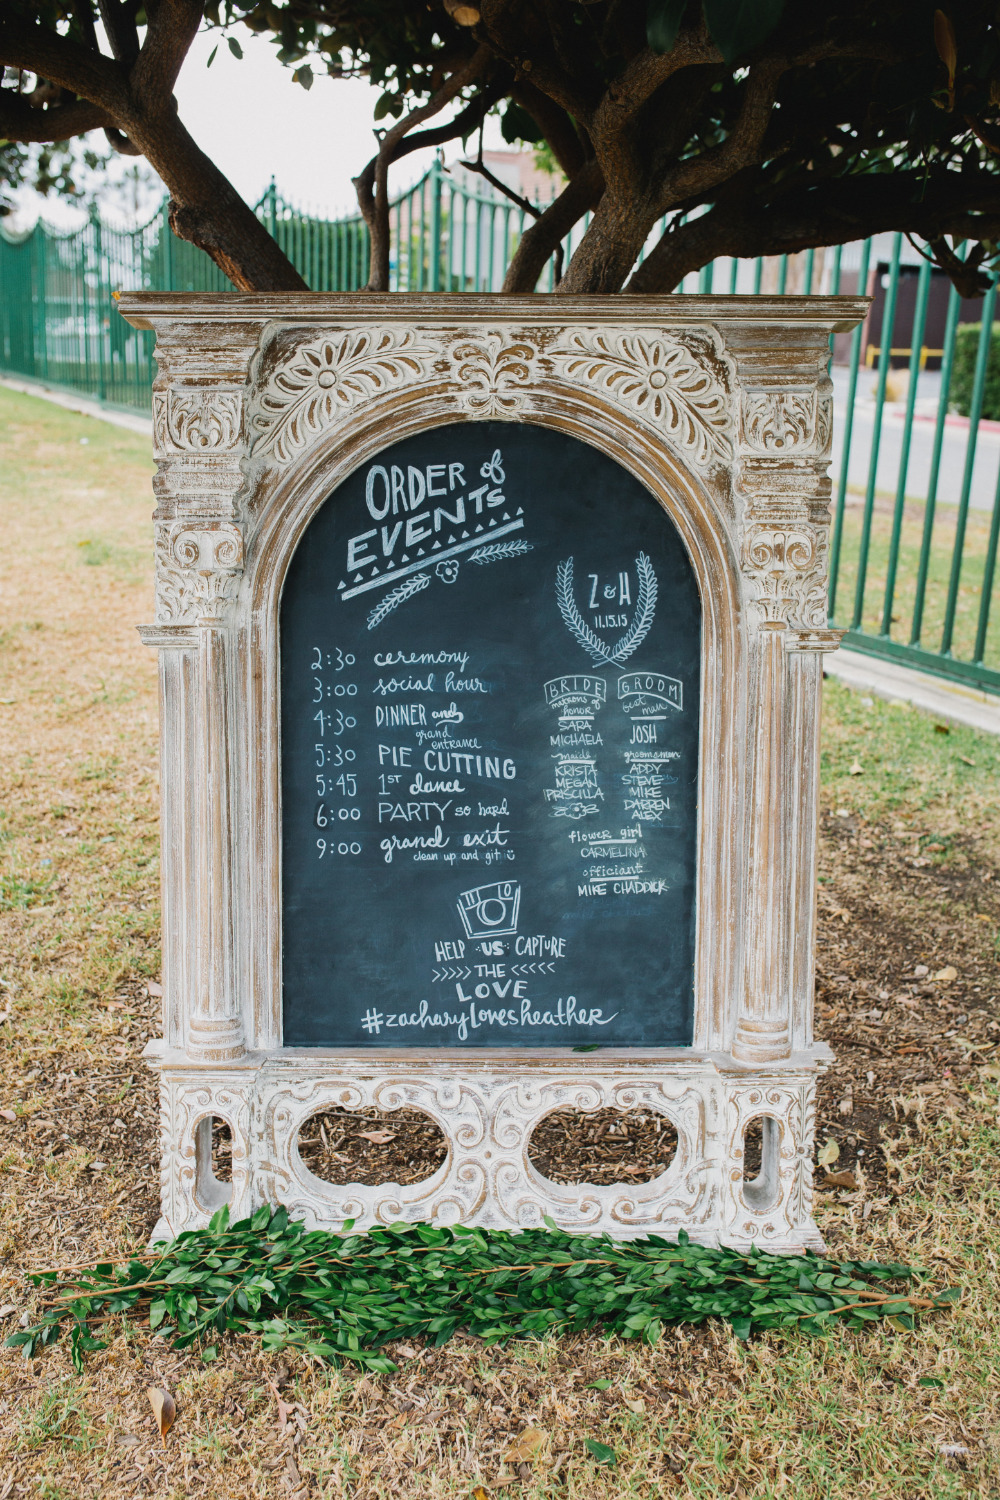 ORDER of
EVENTS
2:30 ceremony
3:00 social hour
4:30 DINNER and
grand
entrance
5:30 PIE CUTTING
5:45 1ST dance
6:00 PARTY so hard
9:00 grand exit
clean up and git
Z & H
11.15.15
BRIDE
matrons of
honor
SARA
MICHAELA
maids
KRISTA
MEGAN
PRISCILLA
GROOM
best
man
JOSH
groomsmen
ADDY
STEVE
MIKE
DARREN
ALEX
flower girl
CARMELINA
officiant
MIKE CHADDICK
HELP US CAPTURE
>>>>> THE <<<<<
LOVE
#zacharylovesheather